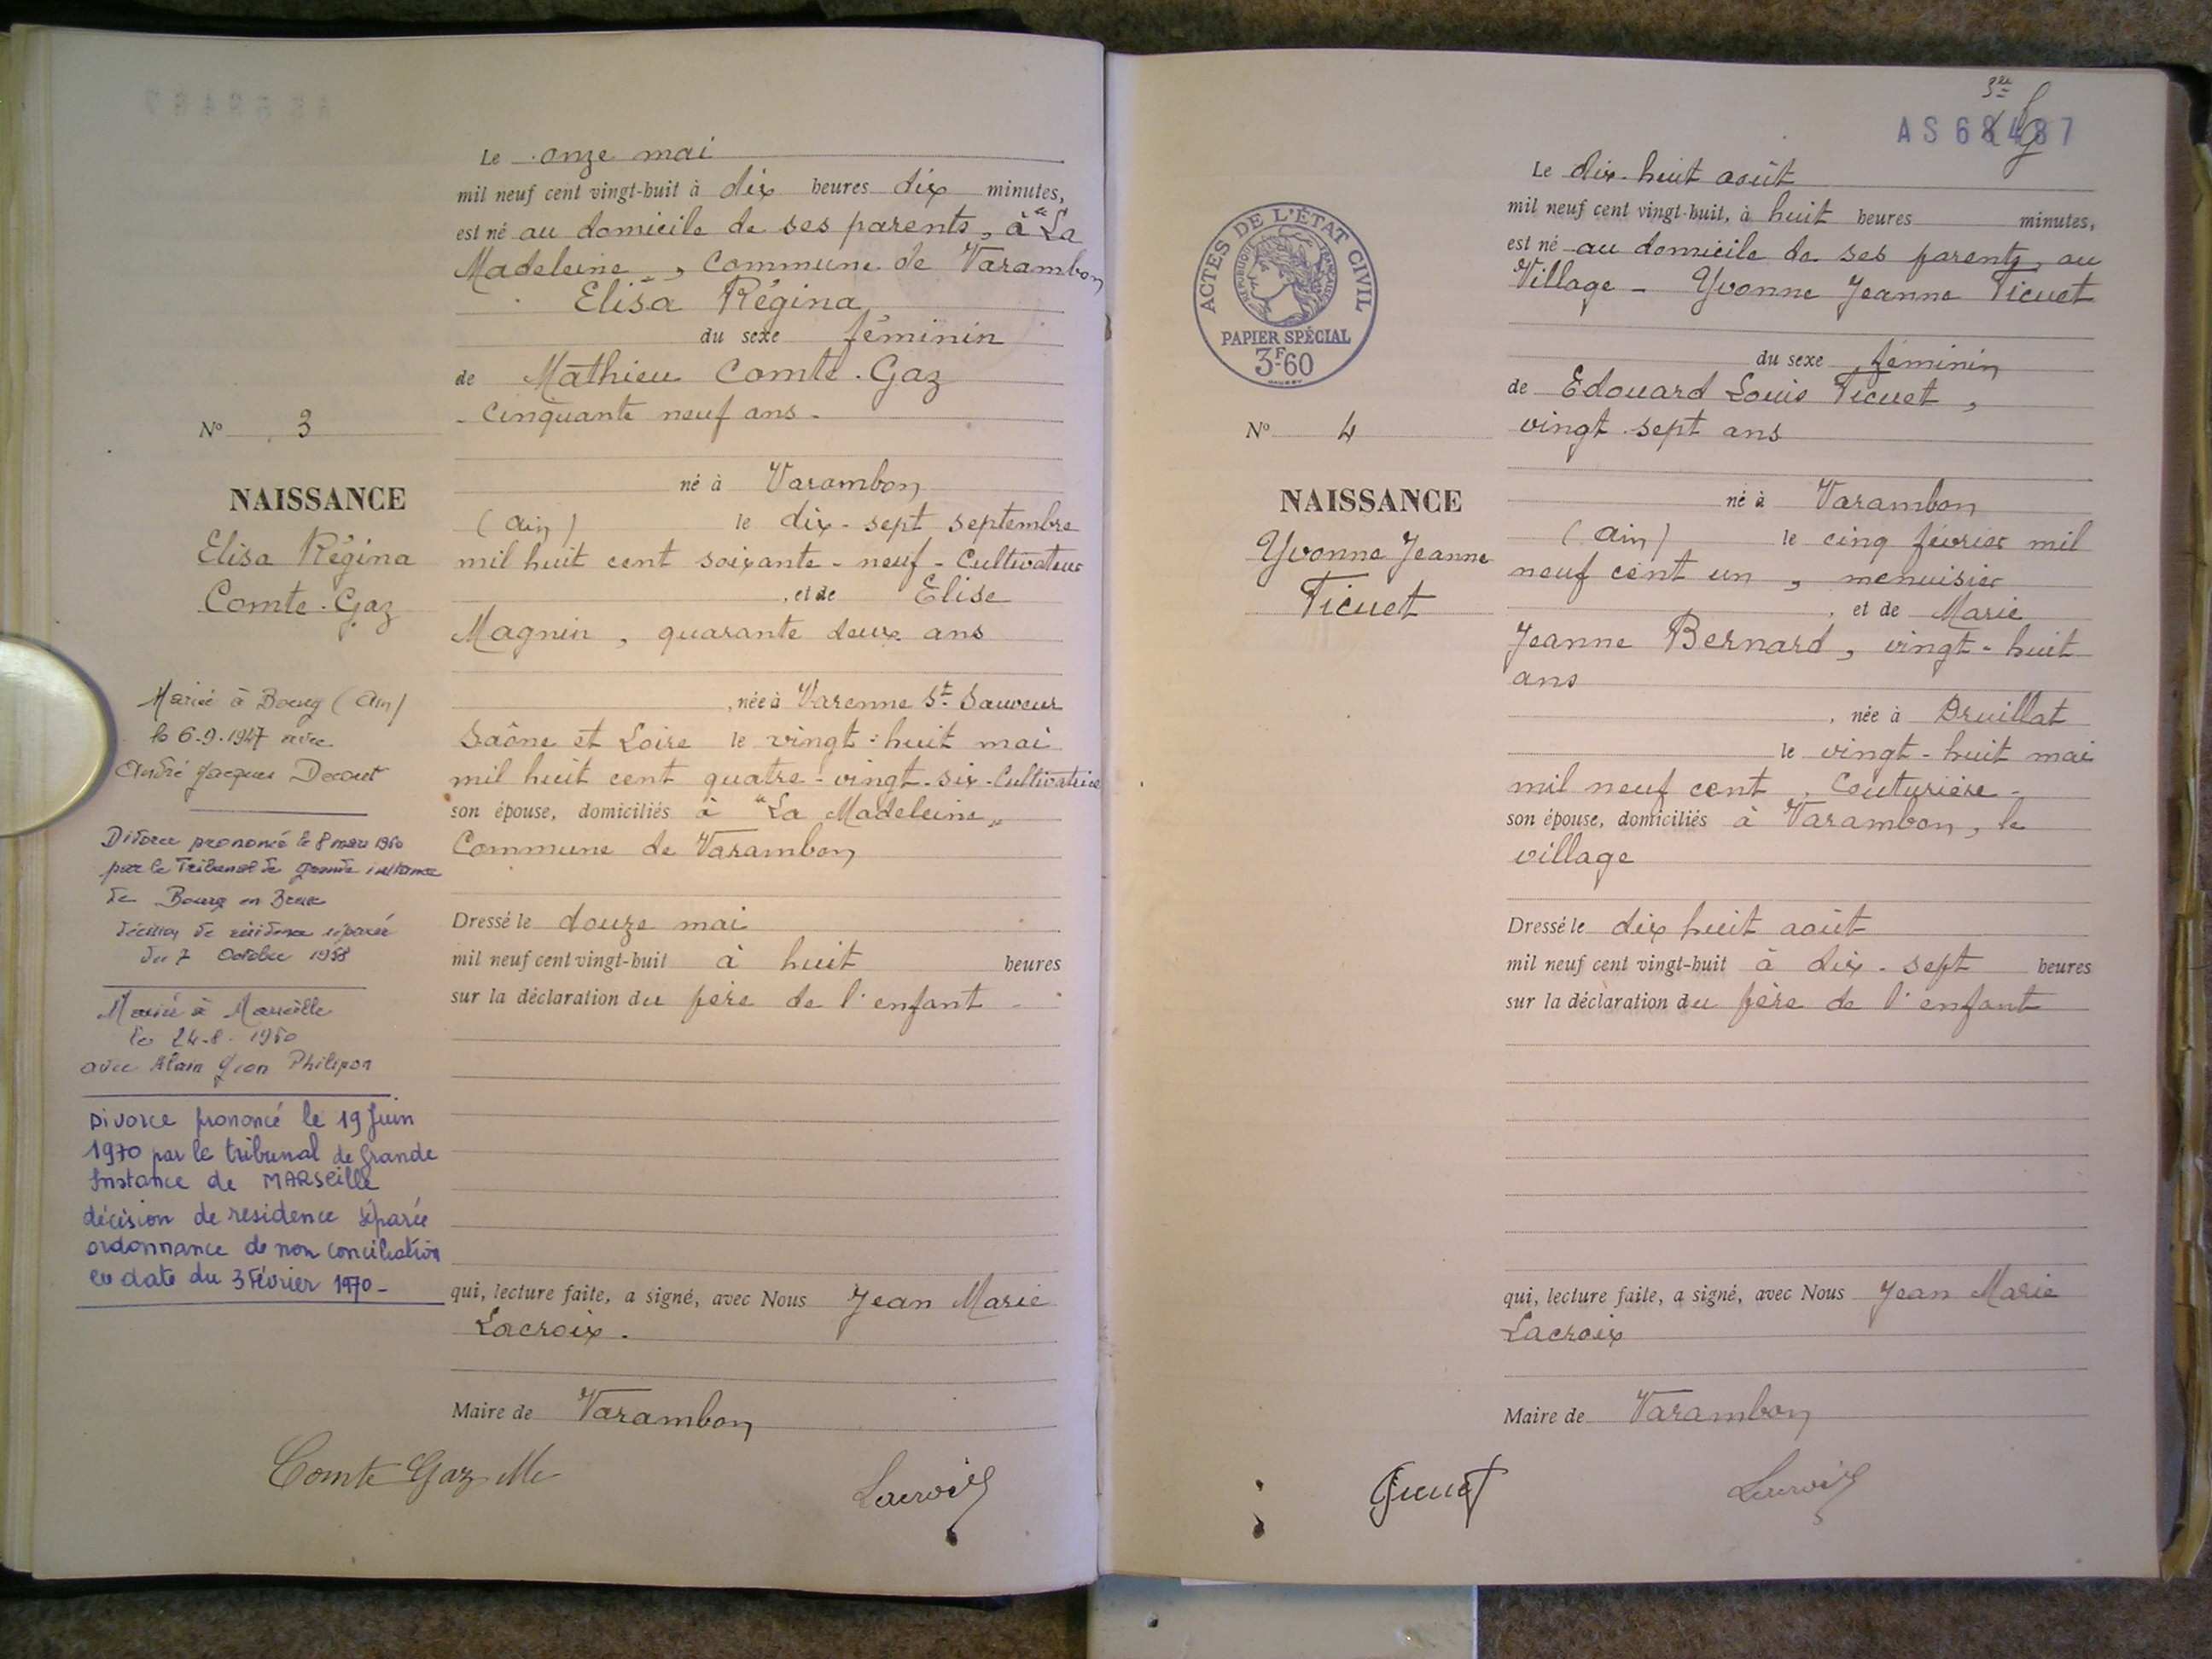 Le onze mai
mil neuf cent vingt-huit à dix heures dix minutes,
est né au domicile de ses parents, à "La
Madeleine", Commune de Varambon
Elisa Régina
du sexe féminin
de Mathieu Comte-Gaz
- Cinquante neuf ans -
né à Varambon
(Ain) le dix-sept septembre
mil huit cent soixante-neuf - Cultivateur
, et de Elise
Magnin, quarante deux ans
, née à Varenne St Sauveur
Saône et Loire le vingt-huit mai
mil huit cent quatre-vingt-six - Cultivatrice
son épouse, domiciliés à "La Madeleine"
Commune de Varambon
Dressé le douze mai
mil neuf cent vingt-huit à huit heures
sur la déclaration du père de l'enfant -
qui, lecture faite, a signé, avec Nous Jean Marie
Lacroix.
Maire de Varambon
Comte Gaz Me
Lacroix
No 3
NAISSANCE
Elisa Régina
Comte-Gaz
Mariée à Bourg (Ain)
le 6-9-1947 avec
André Jacques
Divorce prononcé le 8 mars 1960
par le Tribunal de grande instance
de Bourg en Bresse
décision de résidence séparée
du 7 Octobre 1958
Mariée à Marseille
le 24-8-1960
avec Alain Jean Philipon
Divorce prononcé le 19 Juin
1970 par le tribunal de Grande
Instance de MARSEILLE
décision de residence séparée
ordonnance de non conciliation
en date du 3 Février 1970 -
AS 68487
ACTES DE L'ÉTAT CIVIL
RÉPUBLIQUE FRANÇAISE
PAPIER SPÉCIAL
3F60
No 4
NAISSANCE
Yvonne Jeanne
Ticuet
Le dix-huit août
mil neuf cent vingt-huit, à huit heures minutes,
est né au domicile de ses parents, au
Village - Yvonne Jeanne Ticuet
du sexe féminin
de Edouard Louis Ticuet,
vingt-sept ans
né à Varambon
(Ain) le cinq février mil
neuf cent un, menuisier
, et de Marie
Jeanne Bernard, vingt-huit
ans
, née à Druillat
le vingt-huit mai
mil neuf cent, Couturière -
son épouse, domiciliés à Varambon, le
village
Dressé le dix huit août
mil neuf cent vingt-huit à dix-sept heures
sur la déclaration du père de l'enfant
qui, lecture faite, a signé, avec Nous Jean Marie
Lacroix
Maire de Varambon
Ticuet
Lacroix